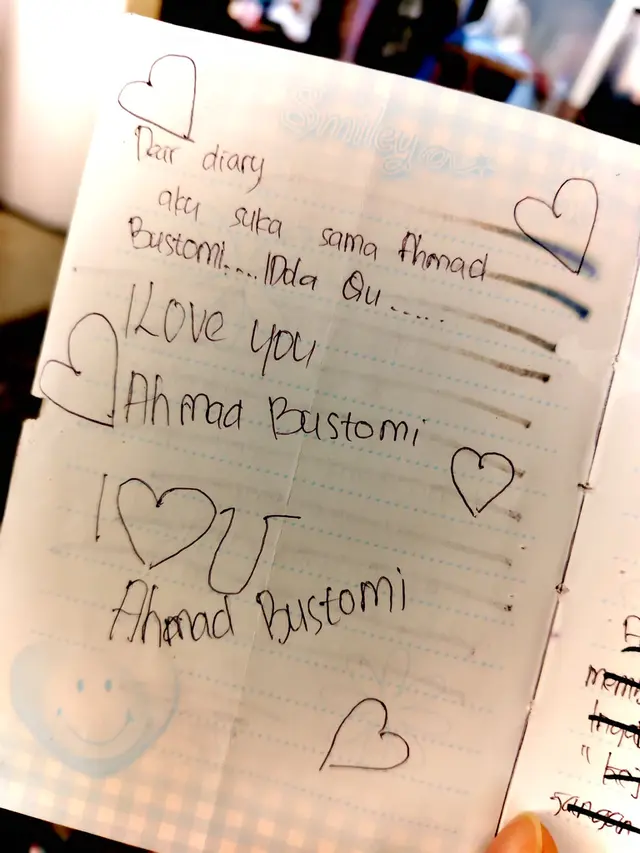 Smiley
Dear diary
aku suka sama Ahmad
Bustomi.....
I Love you
Ahmad Bustomi
I U
Ahmad Bustomi